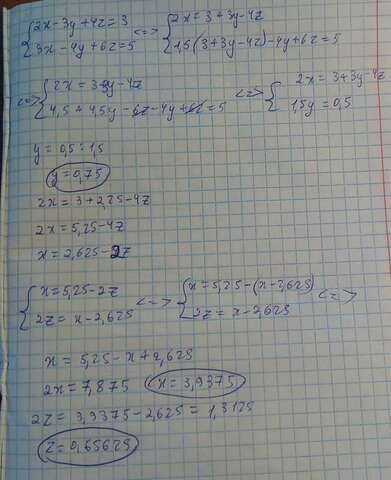 {2x-3y+4z=3 <=> {2x=3+3y-4z
{3x-4y+6z=5 {1,5(3+3y-4z)-4y+6z=5
<=> {2x=3+3y-4z <=> { 2x=3+3y-4z
{4,5+4,5y-6z-4y+6z=5 { 1,5y=0,5
y=0,5·1,5
y=0,75
2x=3+2,25-4z
2x=5,25-4z
x=2,625-2z
{x=5,25-2z <=> {x=5,25-(x-2,625) <=>
{2z=x-2,625 {2z=x-2,625
x=5,25-x+2,625
2x=7,875 x=3,9375
2z=3,9375-2,625=1,3125
z=0,65625